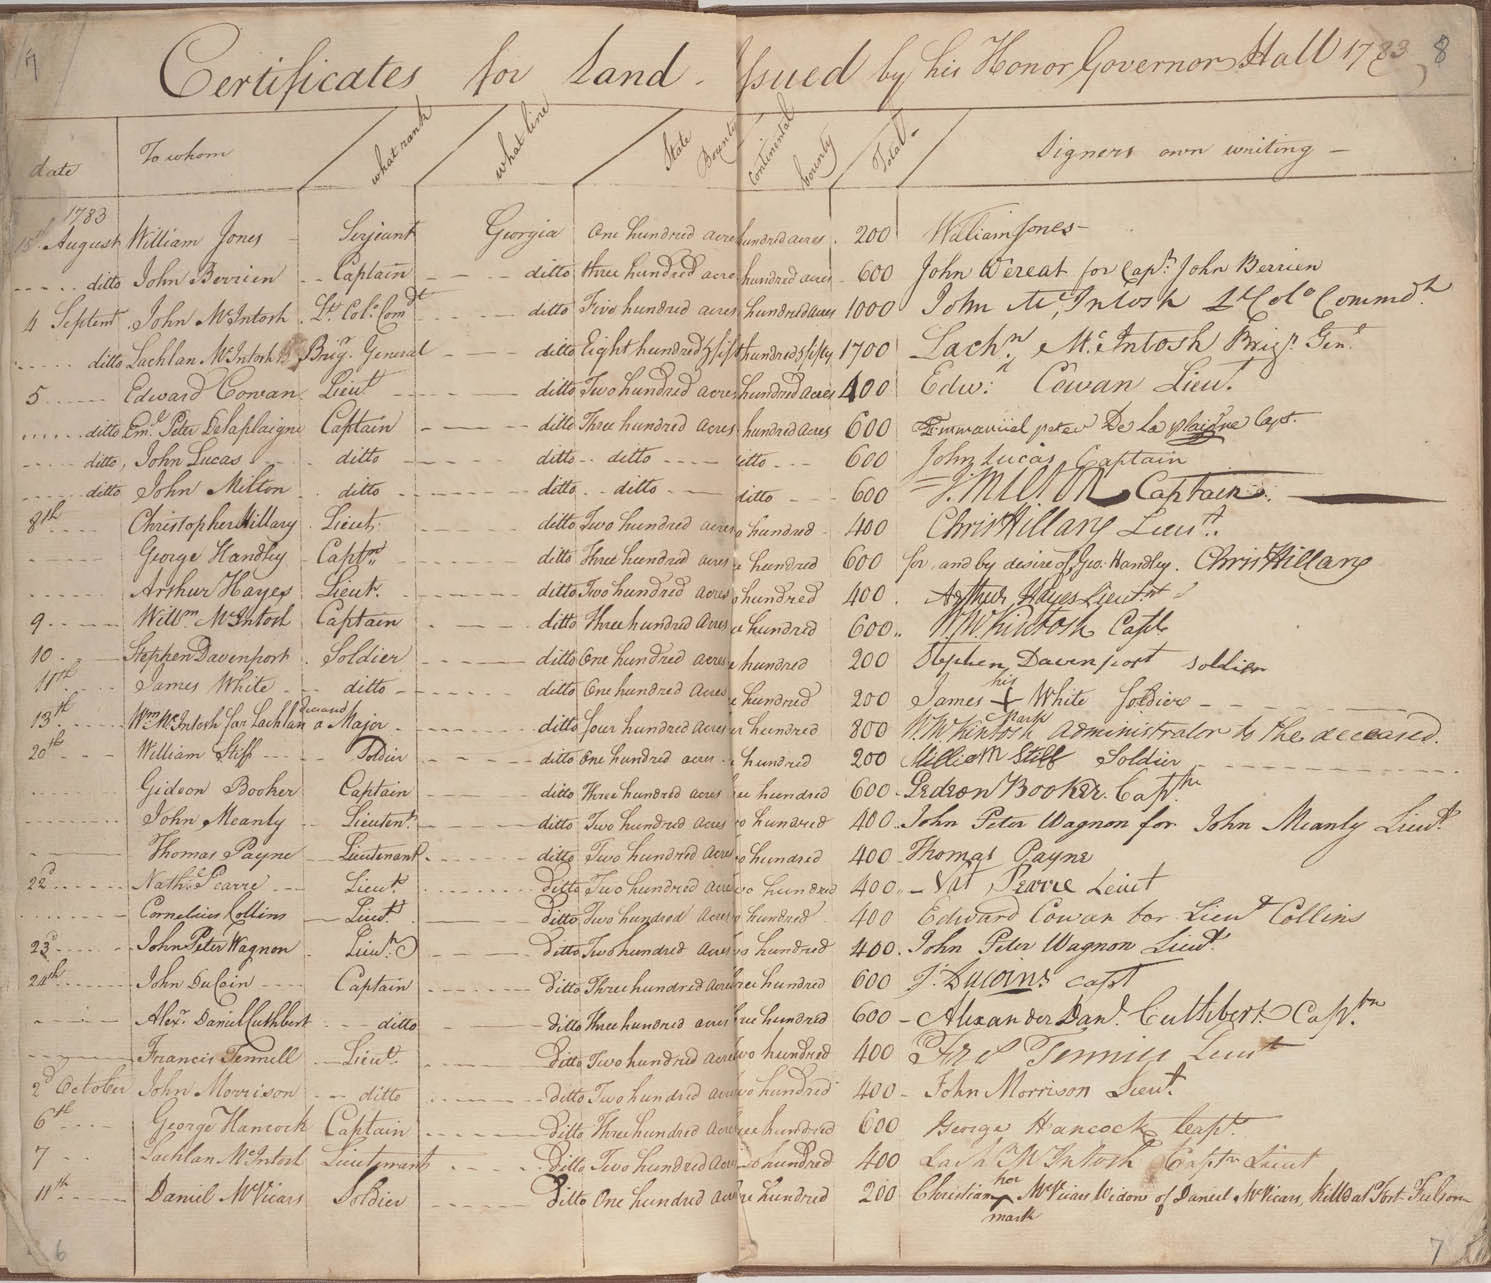 7
8
Certificates for Land Issued by his Honor Governor Hall 1783
date To whom what rank what line State Bounty Continental bounty Total Signers own writing
1783
15th August William Jones Serjeant Georgia One hundred acres hundred acres 200 William Jones
ditto John Berrien Captain ditto three hundred acres hundred acres 600 John Wereat for Capt. John Berrien
4 Septemr John McIntosh Lt. Col. Comdt ditto Five hundred acres hundred acres 1000 John McIntosh Lt Colo Commdt
ditto Lachlan McIntosh Brigr. General ditto Eight hundred & fift hundred & fifty 1700 Lachn. McIntosh Brigr. Genl.
5 Edward Cowan Lieut ditto Two hundred acres hundred acres 400 Edwd. Cowan Lieut.
ditto Eml. Peter Delaplaigne Captain ditto Three hundred Acres hundred acres 600 Emmanuel peter De La plaigne Capt.
ditto John Lucas ditto ditto ditto ditto 600 John Lucas Captain
ditto John Milton ditto ditto ditto ditto 600 J. Milton Captain.
8th Christopher Hillary Lieut. ditto Two hundred acres o hundred 400 Chris Hillary Lieut.
George Handley Captn ditto Three hundred Acres e hundred 600 for and by desire of Geo. Handley. Chris Hillary
Arthur Hayes Lieut. ditto Two hundred acres o hundred 400 Arthur Hayes Lieut.
9 Willm McIntosh Captain ditto Three hundred Acres ee hundred 600 W. McKintosh Capt
10 Stephen Davenport Soldier ditto One hundred Acres e hundred 200 Stephen Davenport soldier
11th James White ditto ditto One hundred Acres e hundred 200 James his + mark White Soldier
13th Wm McIntosh for Lachlan deceased a Major ditto four hundred Acres ur hundred 800 W. McKintosh Administrator to the deceased.
20th William Stiff Soldier ditto One hundred acres e hundred 200 William Stiff Soldier
Gideon Booker Captain ditto Three hundred acres ree hundred 600 Gedeon Booker. Captn
John Meanly Lieutent. ditto Two hundred Acres o hundred 400 John Peter Wagnon for John Meanly Lieut.
Thomas Payne Lieutenant ditto Two hundred Acres o hundred 400 Thomas Payne
22d Nathl. Pearre Lieut. ditto Two hundred Acres wo hundred 400 Nat Pearre Lieut
Cornelius Collins Lieut. ditto Two hundred Acres o hundred 400 Edward Cowan for Lieut Collins
23d John Peter Wagnon Lieut. ditto Two hundred Acres wo hundred 400 John Peter Wagnon Lieut.
24th John DuCoin Captain ditto Three hundred Acres ree hundred 600 J. Ducoins capt
Alexr. Daniel Cuthbert ditto ditto Three hundred acres ree hundred 600 Alexander Danl. Cuthbert Captn
Francis Tennell Lieut. ditto Two hundred Acres wo hundred 400 Tennill Lieut
2d October John Morrison ditto ditto Two hundred Acres wo hundred 400 John Morrison Lieut.
6th George Hancock Captain ditto Three hundred Acres ree hundred 600 George Hancock Capt.
7 Lachlan McIntosh Lieutenant ditto Two hundred Acres o hundred 400 Lach McIntosh Lieut
11th Daniel McVicars Soldier ditto One hundred Acres ne hundred 200 Christian her mark McVicars Widow of Daniel McVicars, Killd at Fort Tulson
6
7